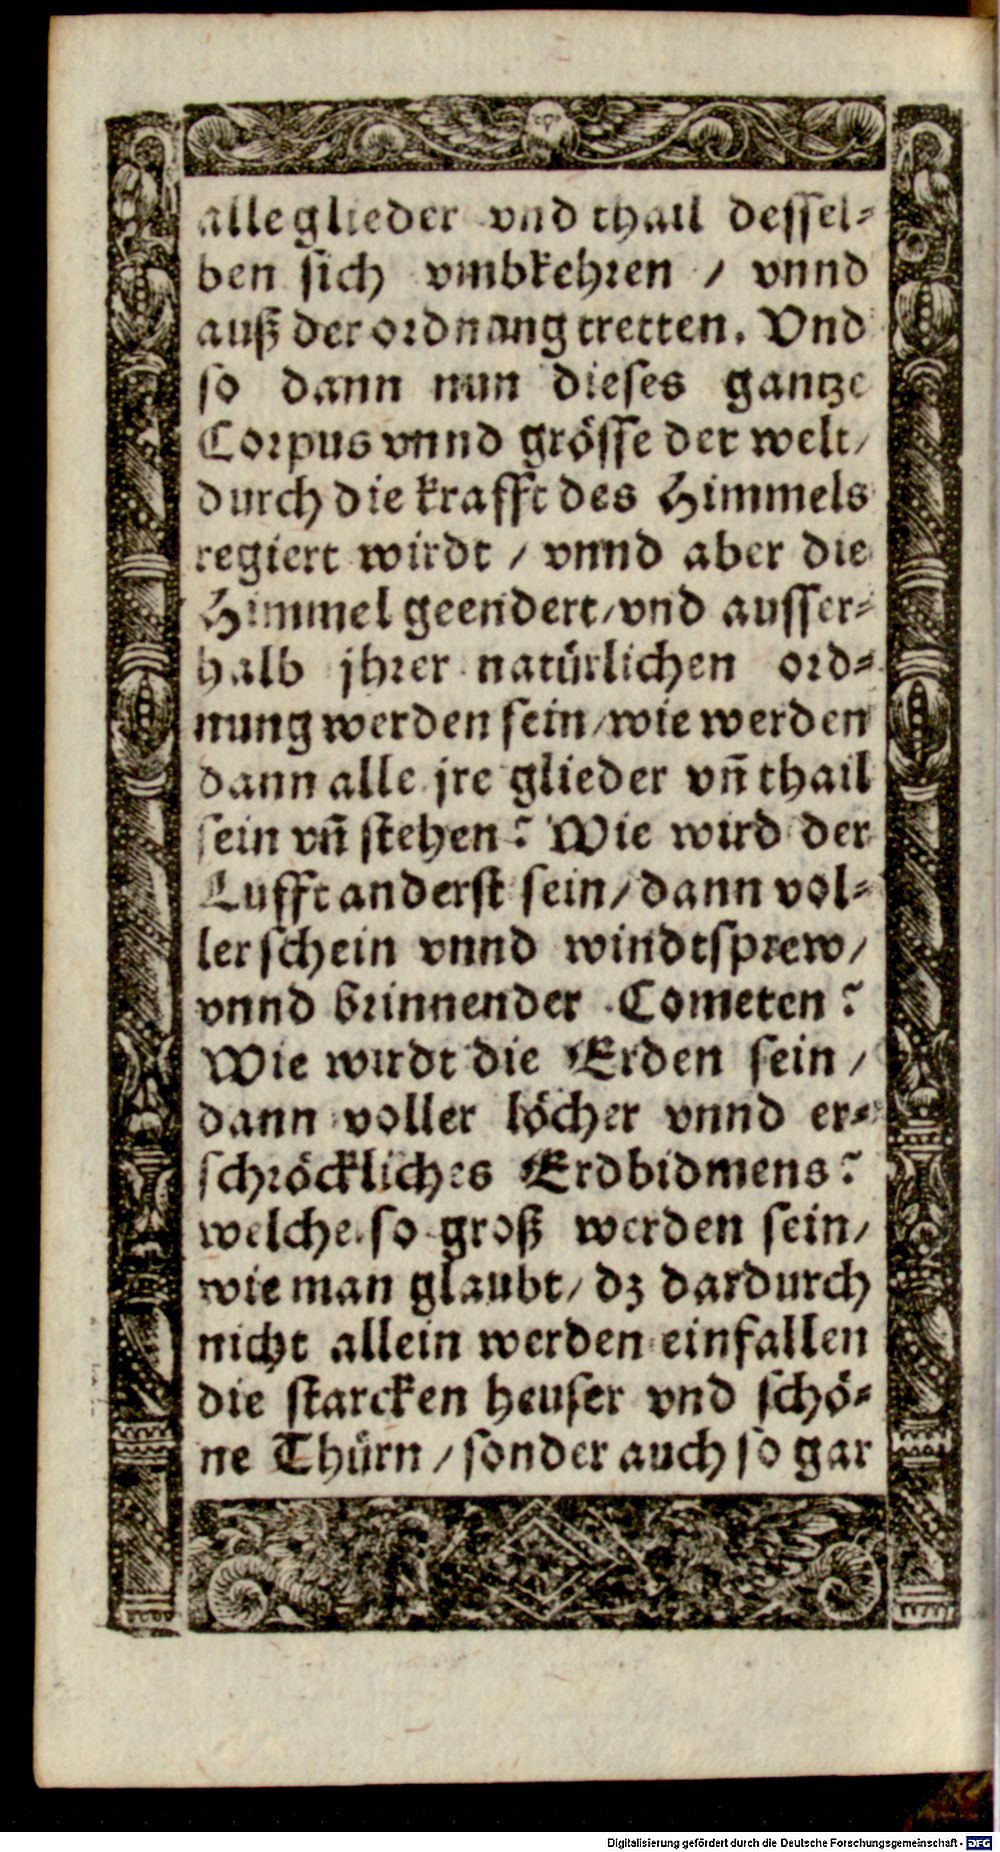 alle glieder vnd thail dessel⸗
ben sich vmbkehren / vnnd
auß der ordnang tretten. Vnd
so dann nun dieses gantze
Corpus vnnd grösse der welt/
durch die krafft des Himmels
regiert wirdt / vnnd aber die
Himmel geendert/vnd ausser⸗
halb jhrer natürlichen ord⸗
nung werden sein/wie werden
dann alle jre glieder vñ thail
sein vñ stehen? Wie wird der
Lufft anderst sein/dann vol⸗
ler schein vnnd windtsprew/
vnnd brinnender Cometen?
Wie wirdt die Erden sein /
dann voller löcher vnnd er⸗
schröckliches Erdbidmens?
welche so groß werden sein/
wie man glaubt/ dz dardurch
nicht allein werden einfallen
die starcken heuser vnd schö⸗
ne Thürn / sonder auch so gar
Digitalisierung gefördert durch die Deutsche Forschungsgemeinschaft - DFG